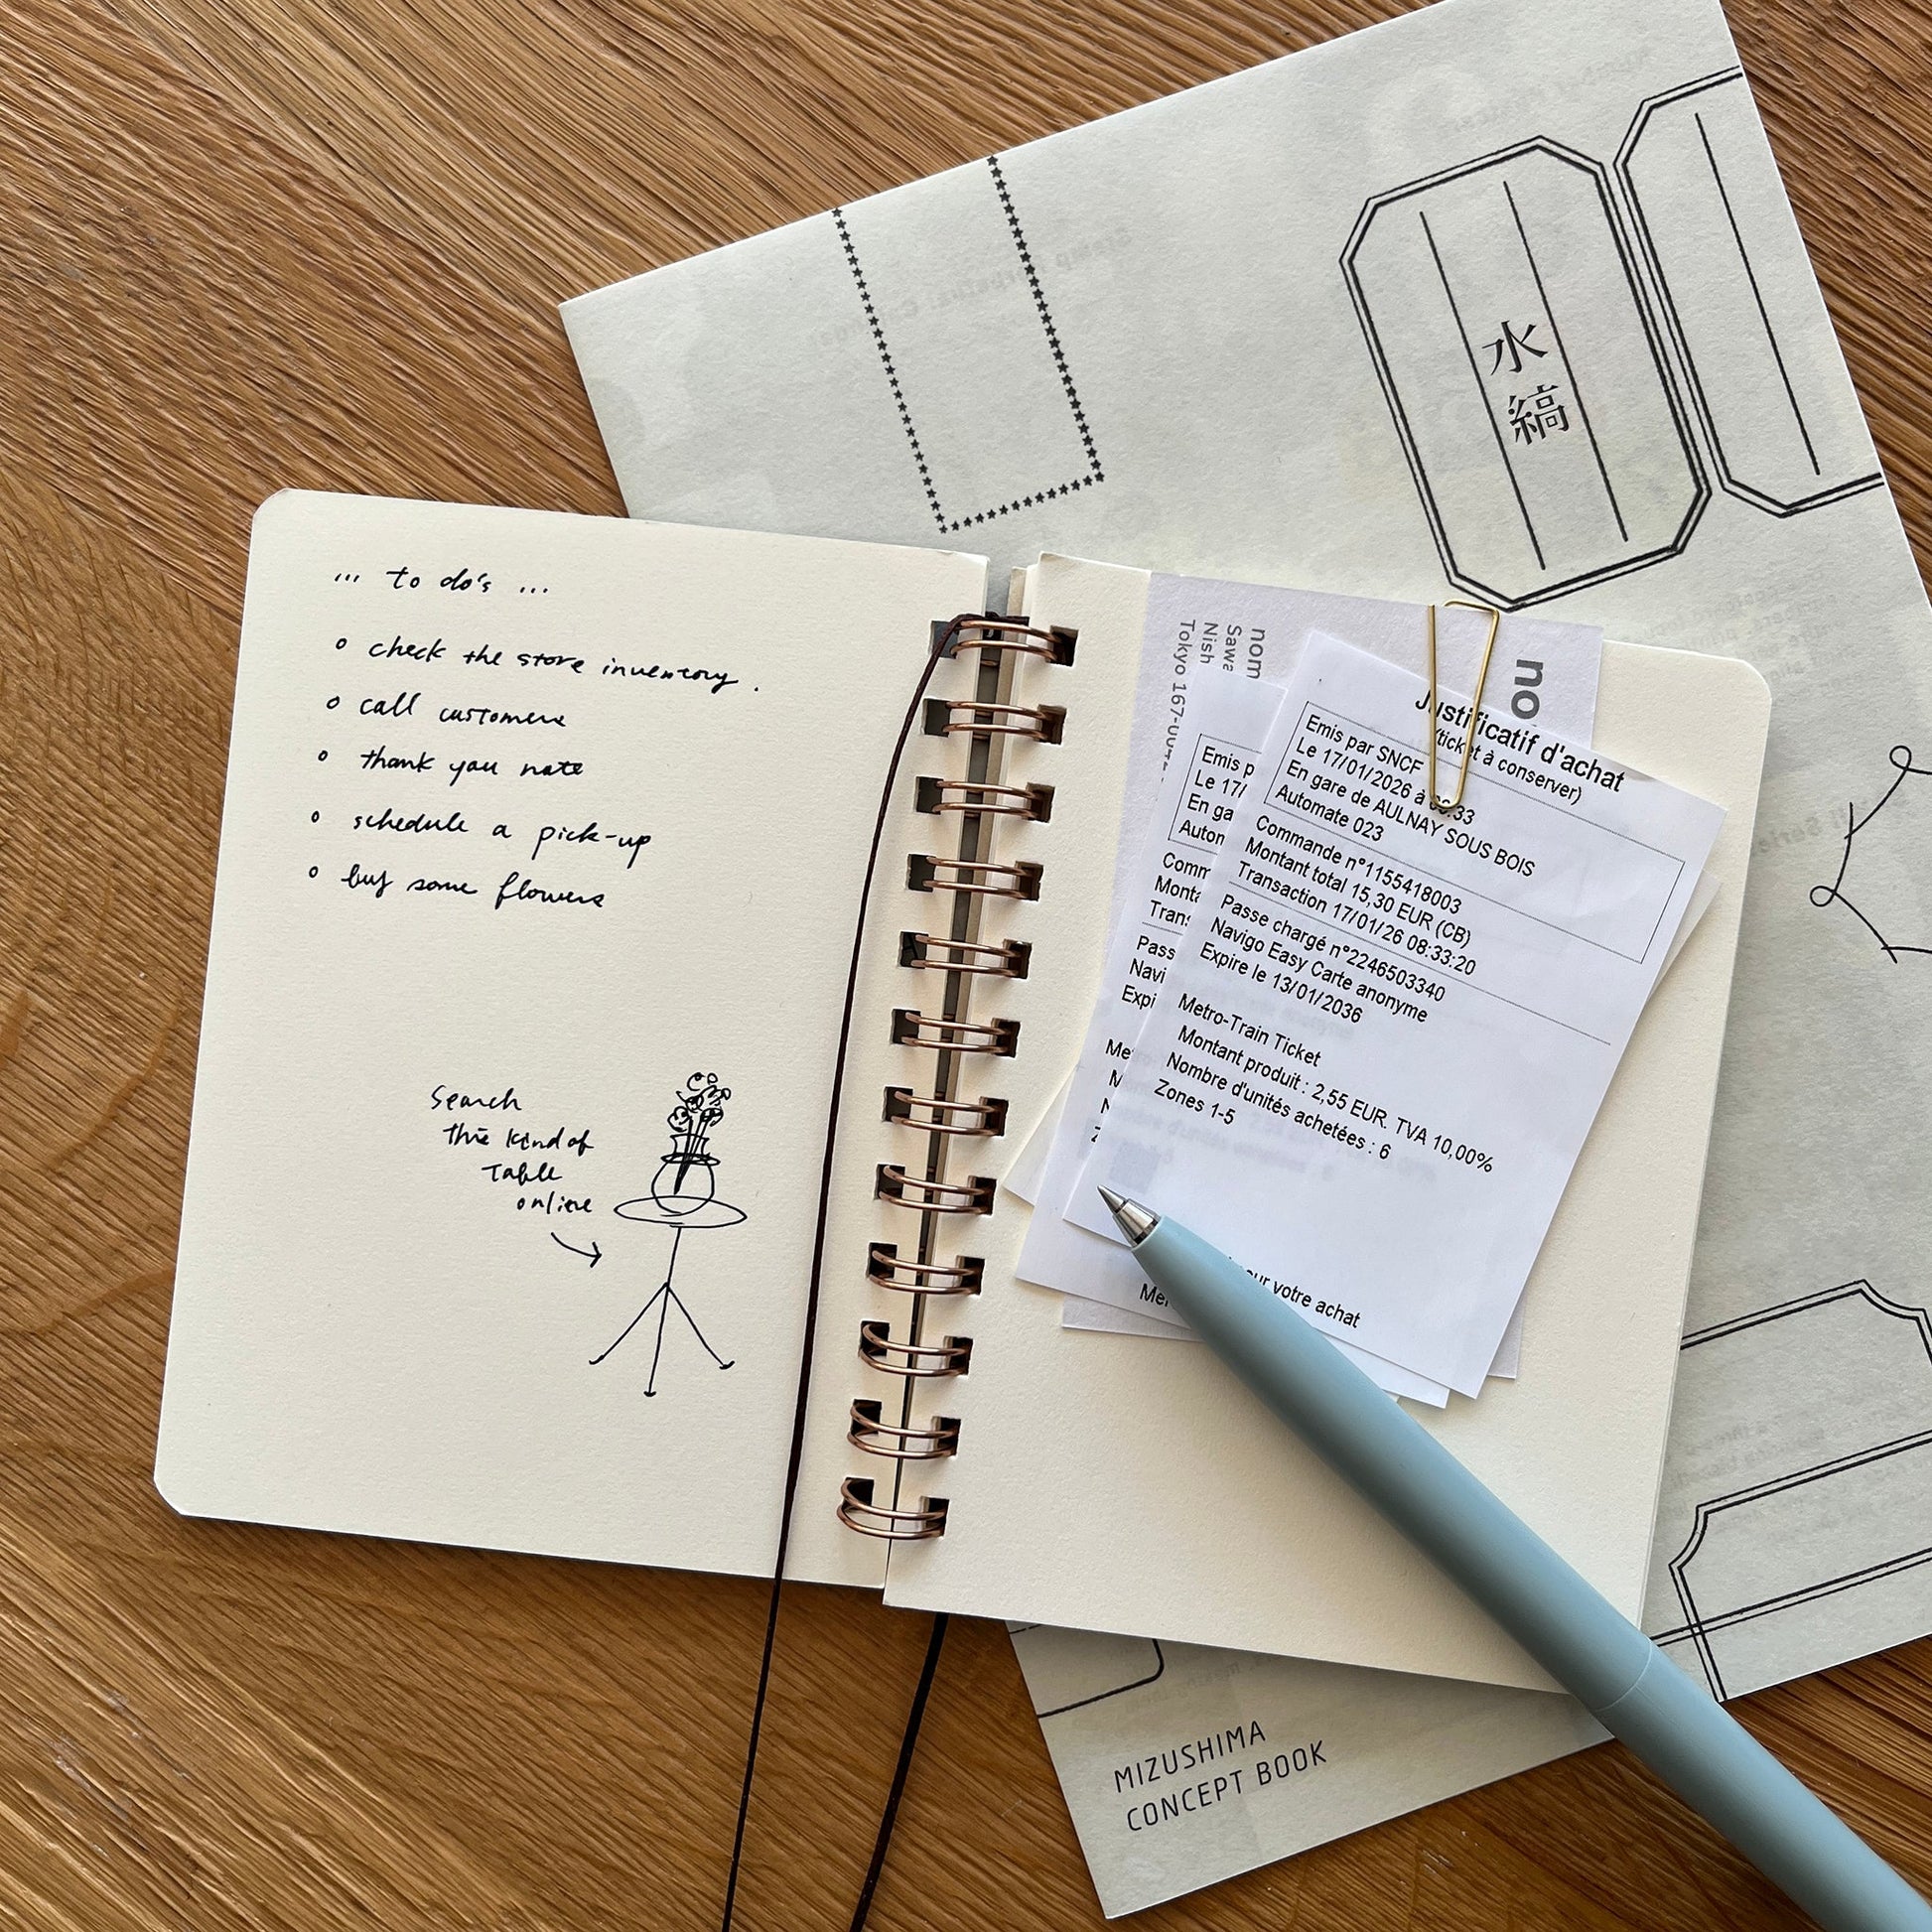 ... to do's ...
o check the store inventory.
o call customers
o thank you note
o schedule a pick-up
o buy some flowers
Search
this kind of
Table
online
水
縞
nom
Sawa
Nish
Tokyo 167-
no
Justificatif d'achat
(ticket à conserver)
Emis par SNCF
Le 17/01/2026 à :33
En gare de AULNAY SOUS BOIS
Automate 023
Commande n°1155418003
Montant total 15,30 EUR (CB)
Transaction 17/01/26 08:33:20
Passe chargé n°2246503340
Navigo Easy Carte anonyme
Expire le 13/01/2036
Metro-Train Ticket
Montant produit : 2,55 EUR. TVA 10,00%
Nombre d'unités achetées : 6
Zones 1-5
votre achat
Emis p
Le 17/
En ga
Auton
Comm
Monta
Trans
Pass
Navi
Expi
Me
Mer
MIZUSHIMA
CONCEPT BOOK